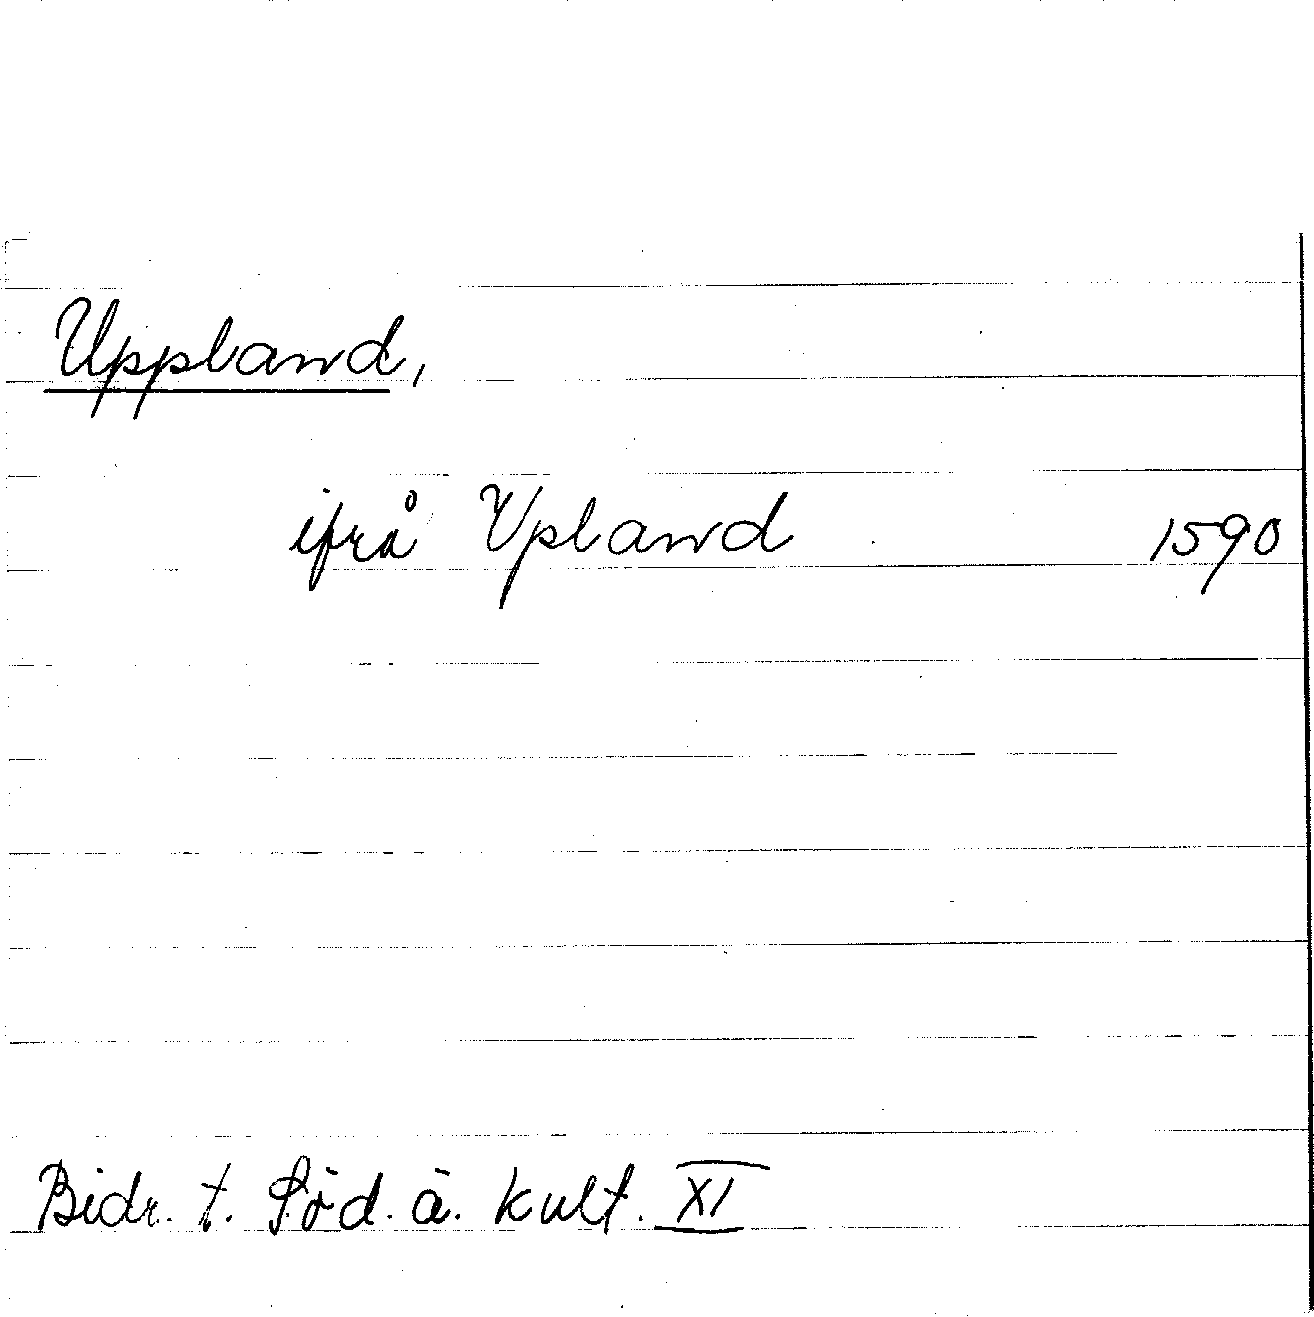 Uppland,
ifrå Vpland 1590
Bidr. t. Söd. ä. kult. XI